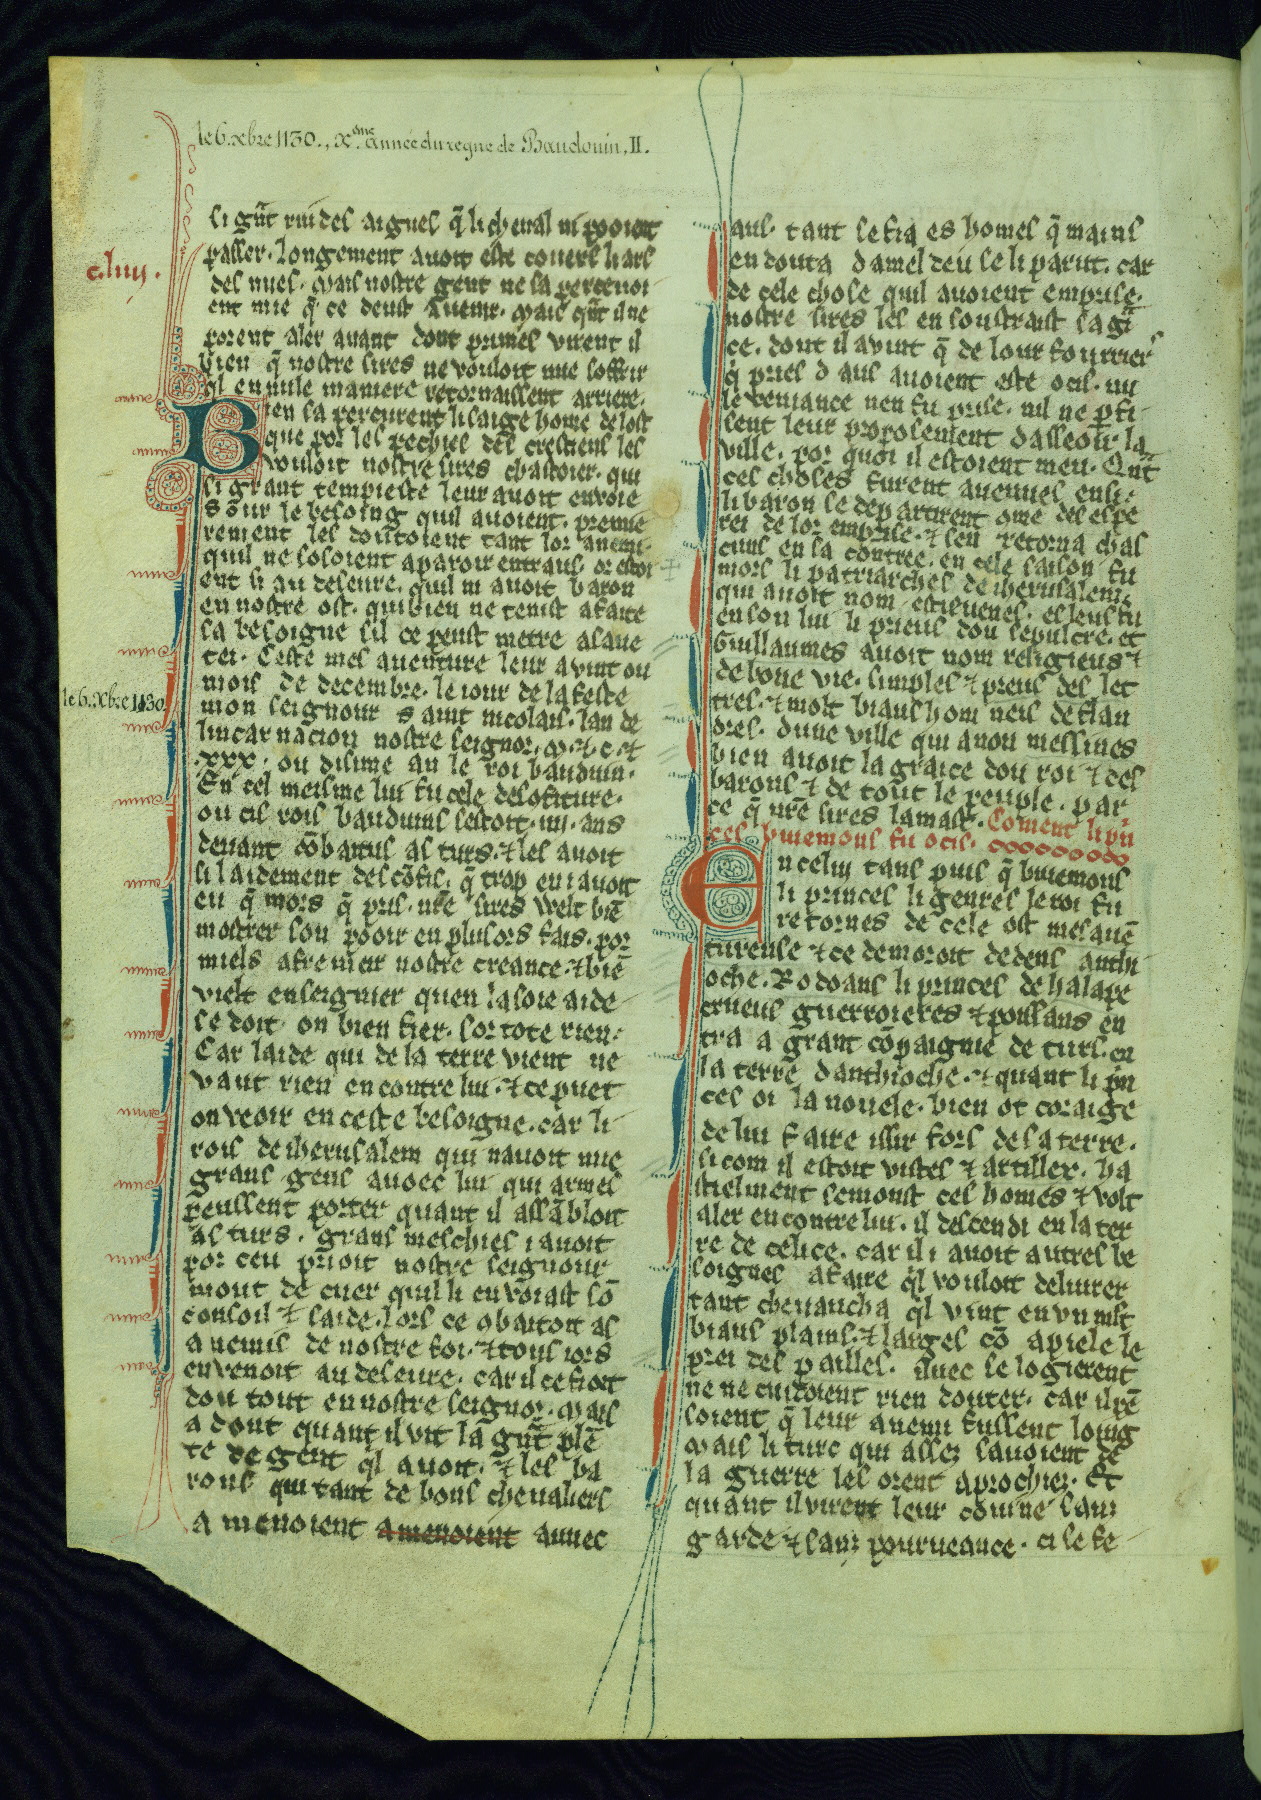 le 6. xbre 1130., x.me année du regne de Baudouin, II.
c.luy.
si gñt rui des aigues q̃ li cheval ni pooient
passer. longement avoit este covers li ars
des nues. mais nostre gent ne sa percevoi
ent mie q̃ ce deust avenir. mais qñt il ne
porent aler avant dont primes virent il
bien q̃ nostre sires ne vouloit mie soffrir
ql en nule maniere retornaissent arriere.
Bien sa percurent li saige home de lost
que por les pechies des crestiens les
vouloit nostre sires chastoier. qui
si grant tempieste leur avoit envoie
sour le besoing quil avoient. premie
rement les doutoient tant lor anemi.
quil ne sosoient aparoir entraus. or estoi
ent si au deseure. quil ni avoit baron
en nostre ost. qui bien ne tenist a faite
sa besoigne sil ce peust metre a lave
tei. Ceste mes aventure leur avint ou
mois de decembre. le iour de la feste
le 6. xbre 1130
mon seignour saint nicolais. lan de
lincarnacion nostre seignor. m. & c. &
.xxx. ou disime an le roi bauduin.
En cel meisme liu fu cele desofiture.
ou cis rois bauduins sestoit. iiii. ans
devant cõbatus as turs. & les avoit
si laidement descõfis. q̃ trop en i avoit
eu q̃ mors q̃ pris. nr̃e sires welt biẽ
mostrer son pooir en plusors fais. por
miels afremer nostre creance. & biẽ
vielt enseignier quen la soie aide
se doit on bien fier. sor tote rien.
Car laide qui de la terre vient ne
vaut rien encontre lui. & ce puet
on veoir en ceste besoigne. car li
rois de iherusalem qui navoit mie
grans gens avoec lui qui armes
peussent porter quant il assãbloit
as turs. grans meschies i avoit
por ceu prioit nostre seignour
mout de cuer quil li envoiast sõ
consoil & saide. lors ce obatoit as
anemis de nostre foi. & tous iors
en venoit au deseure. car il ce fioit
dou tout en nostre seignor. mais
a dont quant il vit la gñt plẽ
te de gent ql avoit. & les ba
rons qui tant de bons chevaliers
a menoient amenoient avuec
aus. tant se fia es homes q̃ mains
en douta dameldeu se li parut. car
de cele chose quil avoient emprise.
nostre sires les en soustraist sa gr̃
ce. dont il avint q̃ de lour fourrier
q̃ pries d aus avoient este ocis. nu
le veniance nen fu prise. nil ne p̃fi
sent leur proposement dasseoir la
ville. por quoi il estoient meu. Qñt
ces choses furent avenues ensi.
li baron se departirent ome desespe
rei de lor emprise. & sen retorna chas
cuns en sa contree. en cele saison fu
mors li patriarches de iherusalem.
qui avoit nom estievenes. esleus fu
en son liu li prieus dou sepulcre. et
Guillaumes avoit nom religieus &
de bone vie. simples & preus des let
tres. & molt biaus hom neis de flan
dres. dune ville qui a non messines
bien avoit la graice dou roi & des
barons & de tout le peuple. par
ce q̃ nr̃e sires lamast. Coment li pñ
ces buiemons fu ocis.
En celui tans puis q̃ buiemons
li princes li genres le roi fu
retornes de cele ost mesavẽ
tureuse & ce demoroit dedens anthi
oche. Rodoans li princes de halape
crueus guerroieres & poussans en
tra a grant cõpaignie de turs. en
la terre danthioche. & quant li pñ
ces oi la novele. bien ot coraige
de lui faire issir fors de sa terre.
si com il estoit vistes & artiller. ha
stielment semonst ces homes & volt
aler encontre lui. il descendi en la ter
re de celice. car il i avoit autres be
soignes a faire ql vouloit delivrer
tant chevaucha ql vint en vn mlt
biaus plains. & larges cõ apiele le
prei des pailles. avec se logierent
ne ne cuidoient rien douter. car il pẽ
soient q̃ leur anemi fussent loing
mais li turc qui assez savoient de
la guerre les orent aprochiez. Et
quant il virent leur covine sanz
garde & sanz pourveance. ci se fe